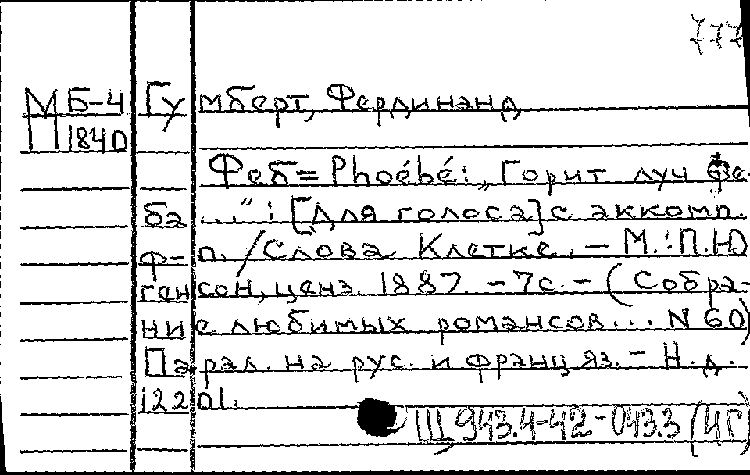 777
МБ-4 Гумберт, Фердинанд
П 1840
Феб = Phoébé: „Горит луч Фе-
ба ...": [Для голоса] с аккомп.
ф-п. / Слова Клетке. – М.: П.Ю
генсон, ценз. 1887. – 7с. – (Собра-
ние любимых романсов... N 60)
Парал. на рус. и франц яз. – Н.д.
12201.
Щ 943.4-42-043.3 (4Г)